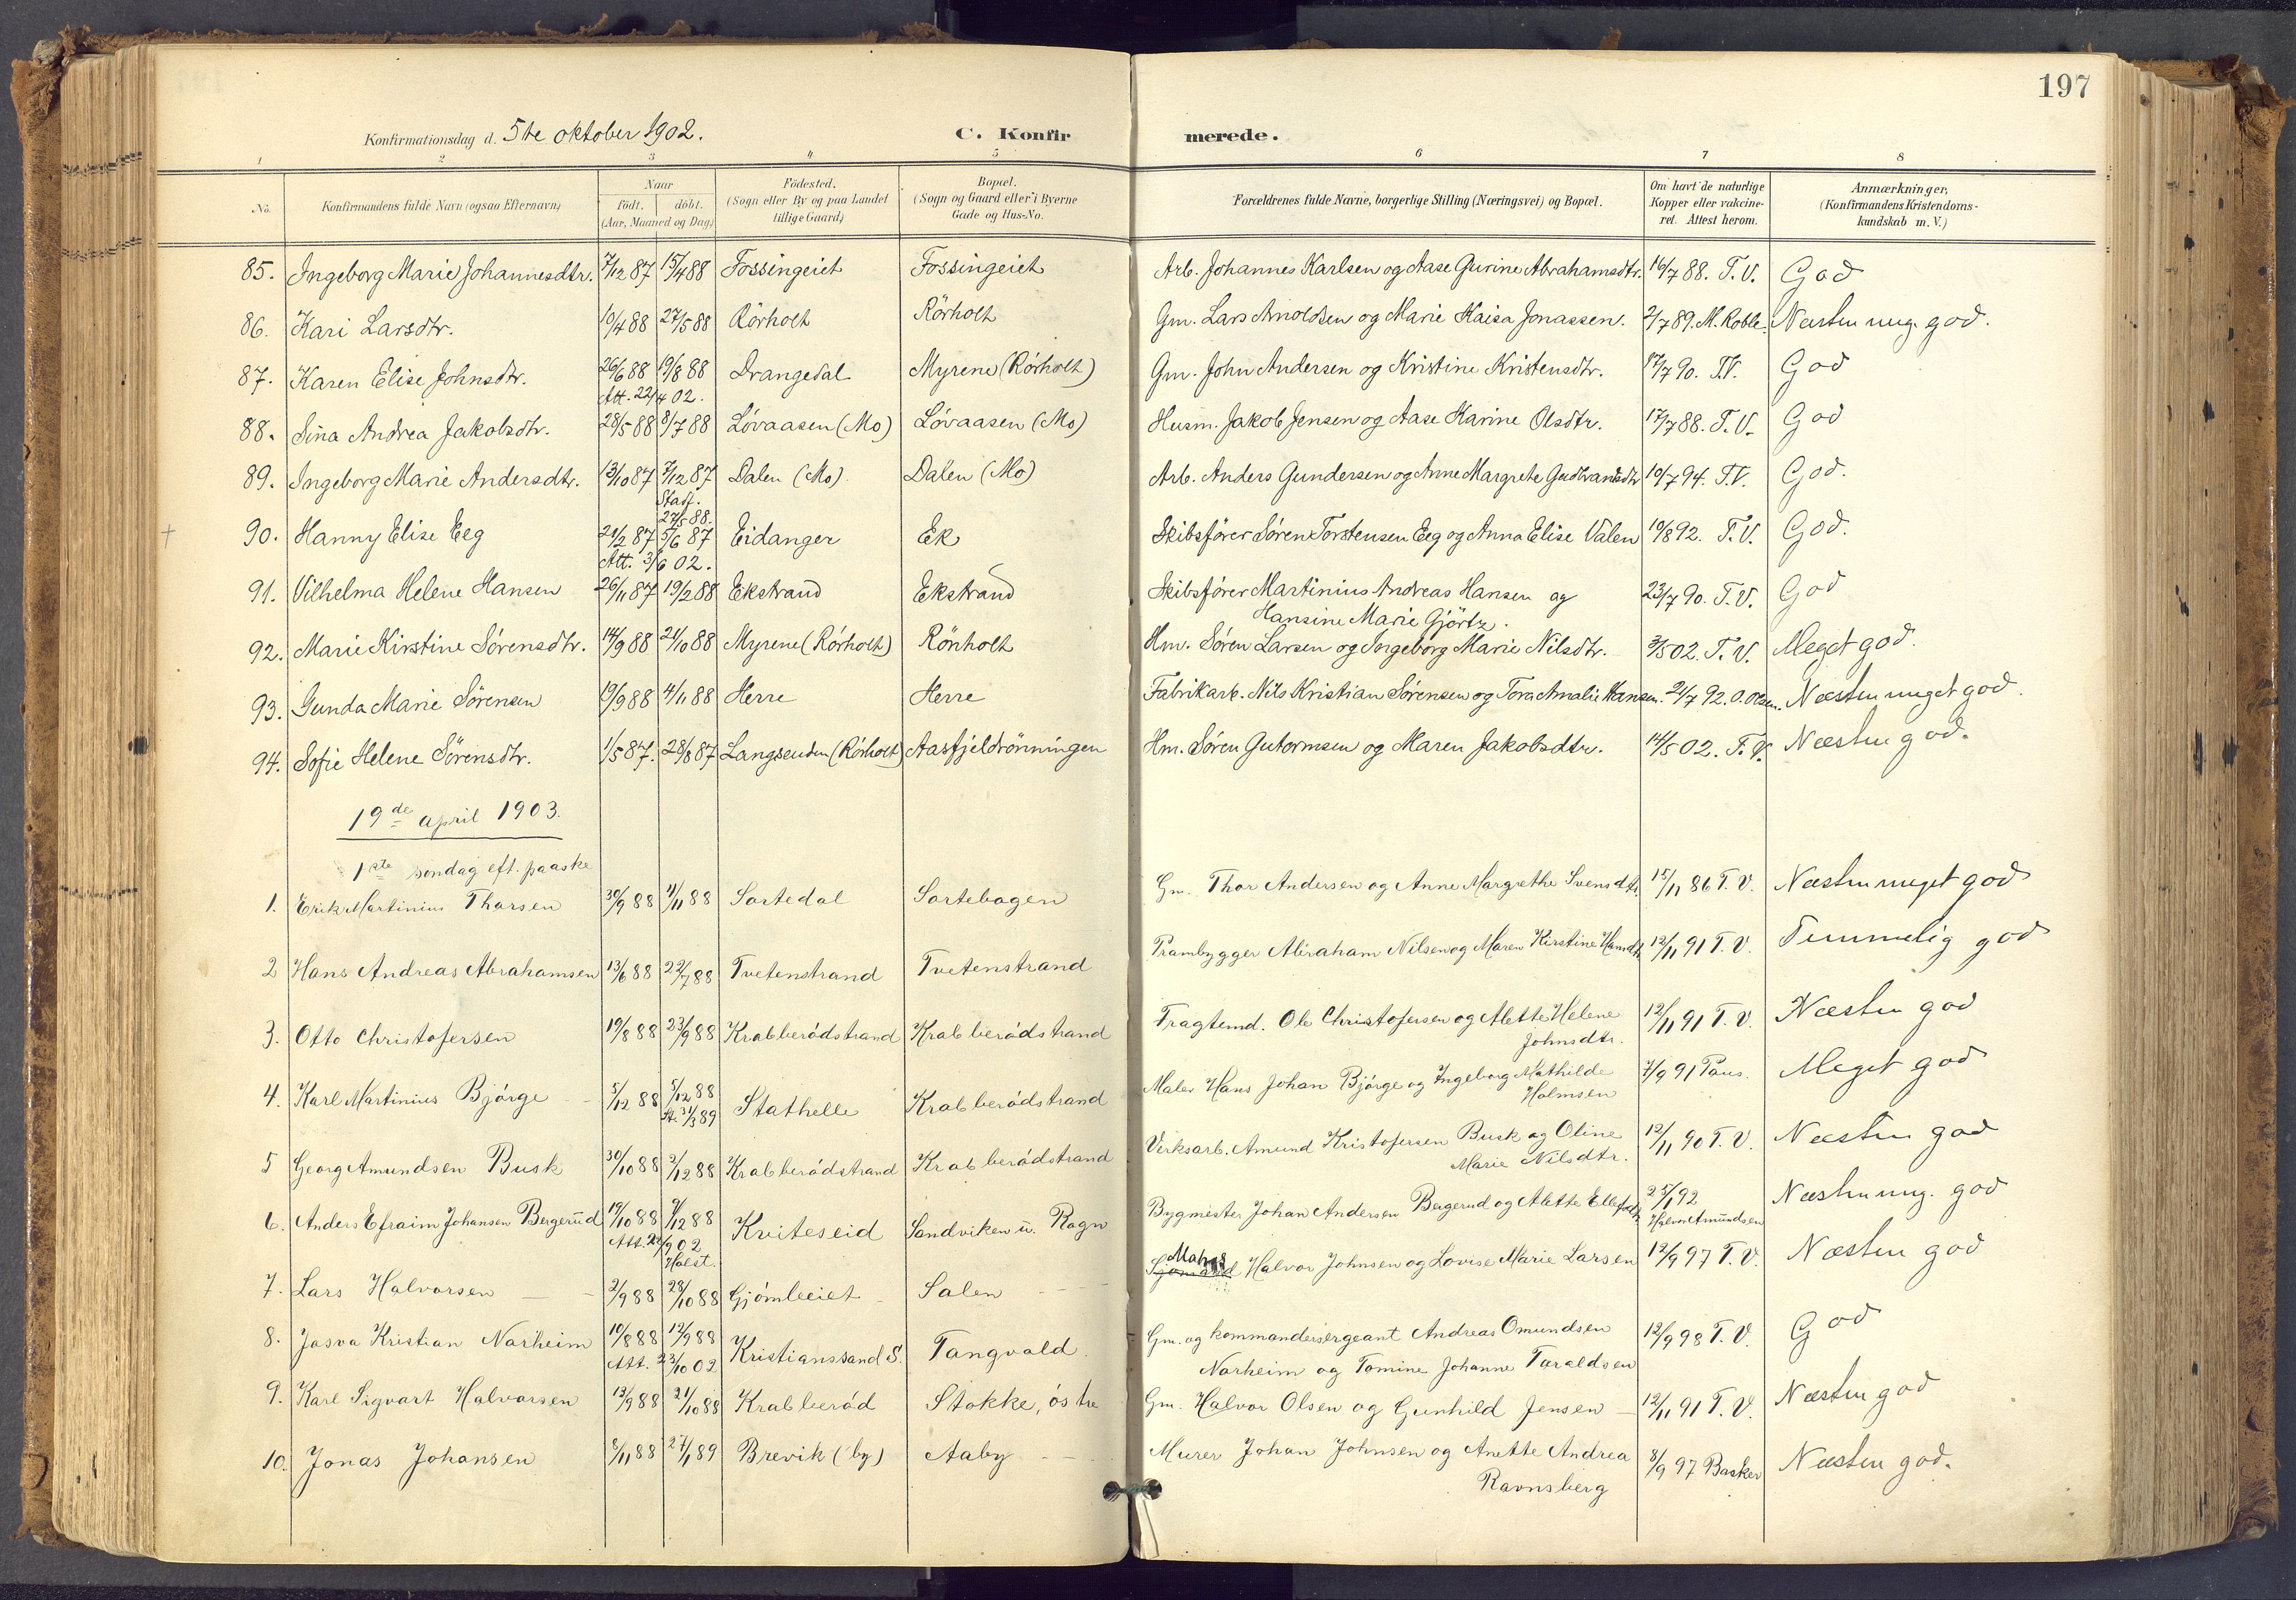 197
Konfirmationsdag d. 5te oktober 1902. C. Konfirmerede.
1 2 3 4 5 6 7 8
No. Konfirmandens fulde Navn (ogsaa Efternavn) Naar født. døbt. (Aar, Maaned og Dag) Födested. (Sogn eller By og paa Landet tillige Gaard) Bopæl. (Sogn og Gaard eller i Byerne Gade og Hus-No. Forældrenes fulde Navne, borgerlige Stilling (Næringsvei) og Bopæl. Om havt de naturlige Kopper eller vakcineret. Attest herom. Anmærkninger. (Konfirmandens Kristendomskundskab m. V.)
85. Ingeborg Marie Johannesdtr. 7/12 87 15/4 88 Fossingeiet Fossingeiet Arb. Johannes Karlsen og Aase Gurine Abrahamsdtr. 16/7 88. T.V. God
86. Kari Larsdtr. 10/4 88 27/5 88 Rörholt Rörholt Gm. Lars Arnoldsen og Marie Kaisa Jonassen. 2/7 89. M. Roble. Næsten meg. god.
87. Karen Elise Johnsdtr. 26/6 88 19/8 88 Drangedal Myrene (Rörholt) Gm. John Andersen og Kristine Kristensdtr. 17/7 90. T.V. God
Att. 22/4 02.
88. Sina Andrea Jakobsdtr. 28/5 88 8/7 88 Lövaasen (Mo) Lövaasen (Mo) Husm. Jakob Jensen og Aase Karine Olsdtr. 17/7 88. T.V. God
89. Ingeborg Marie Andersdtr. 13/10 87 7/12 87 Dalen (Mo) Dalen (Mo) Arb. Anders Gundersen og Anne Margrete Gudbrandsdtr 10/7 94. T.V. God.
Stadf. 27/5 88.
90. Hanny Elise Eeg 21/2 87 5/6 87 Eidanger Ek Skibsförer Søren Torstensen Eeg og Anna Elise Valen 10/8 92. T.V. God.
Att. 3/6 02.
91. Vilhelma Helene Hansen 26/11 87 19/2 88 Ekstrand Ekstrand Skibsförer Martinius Andreas Hansen og 23/7 90. T.V. God
Hansine Marie Gjörtz.
92. Marie Kirstine Sörensdtr. 14/9 88 21/10 88 Myrene (Rörholt) Rönholt Hm. Søren Larsen og Ingeborg Marie Nilsdtr. 3/5 02. T.V. Meget god.
93. Gunda Marie Sörensen 19/9 88 4/11 88 Herre Herre Fabrikarb. Nils Kristian Sörensen og Tora Amalie Hansen. 21/7 92. O. Olsen. Næsten meget god.
94. Sofie Helene Sörensdtr. 1/5 87. 28/8 87 Langsenden (Rörholt) Aasfjeldrönningen Hm. Søren Gutormsen og Maren Jakobsdtr. 14/5 02. T.V. Næsten god.
19de april 1903.
1ste søndag eft. paaske
1. Erik Martinius Thorsen 30/9 88 11/11 88 Sortedal Sortebogen Gm. Thor Andersen og Anne Margrethe Svensdtr. 15/11 86 T.V. Næsten meget god
2 Hans Andreas Abrahamsen 13/6 88 22/7 88 Tvetenstrand Tvetenstrand Prambygger Abraham Nilsen og Maren Kirstine Hansdtr 12/11 91 T.V. Temmelig god
3. Otto Christofersen 19/8 88 23/9 88 Krabberödstrand Krabberödstrand Fragtemd. Ole Christofersen og Alette Helene 12/11 91 T.V. Næsten god
Johnsdtr.
4. Karl Martinius Bjørge 5/12 88 5/12 88 Stathelle Krabberödstrand Maler Hans Johan Bjørge og Ingeborg Mathilde 7/9 91 Paus. Meget god
St. 31/3 89 Holmsen
5 Georg Amundsen Busk 30/10 88 2/12 88 Krabberödstrand Krabberödstrand Verksarb. Amund Kristofersen Busk og Oline 12/11 90 T.V. Næsten god
Marie Nilsdtr.
6. Anders Efraim Johansen Bergerud 19/10 88 9/12 88 Kviteseid Sandviken u. Rogn Bygmester Johan Andersen Bergerud og Alette Ellefsdtr 25/1 92 Næsten meg. god
Att. 22/9 02 Halvor Amundsen
Holst.
7. Lars Halvorsen 2/9 88 28/10 88 Gjömleeiet Salen Sjømand Matros Halvor Johnsen og Lovise Marie Larsen 12/9 97 T.V. Næsten god
8. Josva Kristian Narheim 10/8 88 12/9 88 Kristianssand S. Tangvald Gm. og kommandersergeant Andreas Omundsen 12/9 98 T.V. God
Att. 23/10 02 Norheim og Tomine Johanne Taraldsen
9. Karl Sigvart Halvorsen 13/9 88 21/10 88 Krabberød Stokke, östre Gm. Halvor Olsen og Gunhild Jensen 12/11 91 T.V. Næsten god
10. Jonas Johansen 8/11 88 27/1 89 Brevik (by) Aaby Murer Johan Johnsen og Anette Andrea 8/9 97 Basker Næsten god.
Ravnsberg